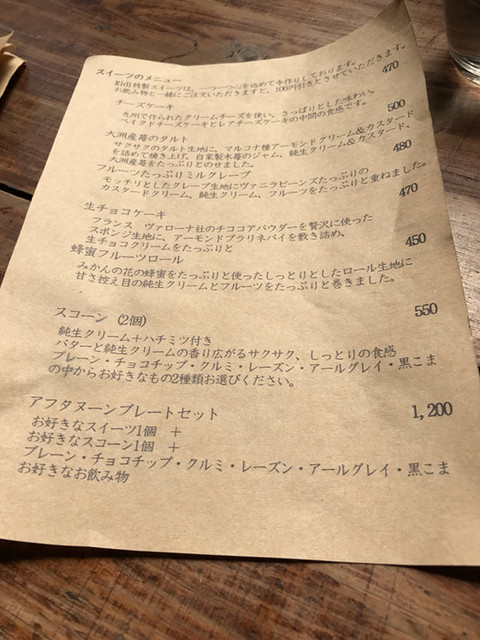 スイーツのメニュー
Ridi特製スイーツは、一つ一つ心を込めて手作りしております。
お飲み物と一緒にご注文いただきますと、100円引きとさせていただきます。
チーズケーキ 470
九州で作られたクリームチーズを使い、さっぱりとした味わい。
ベイクドチーズケーキとレアチーズケーキの中間の食感です。
大洲産苺のタルト 500
サクサクのタルト生地に、マルコナ種アーモンドクリーム&カスタード
を詰めて焼き上げ、自家製木苺のジャム、純生クリーム&カスタード、
大洲産苺をたっぷりとのせました。
フルーツたっぷりミルクレープ 480
モッチリとしたクレープ生地にヴァニラビーンズたっぷりの
カスタードクリーム、純生クリーム、フルーツをたっぷりと重ねました。
生チョコケーキ 470
フランス ヴァローナ社のチココアパウダーを贅沢に使った
スポンジ生地に、アーモンドプラリネバイを敷き詰め、
生チョコクリームをたっぷりと
蜂蜜フルーツロール 450
みかんの花の蜂蜜をたっぷりと使ったしっとりとしたロール生地に
甘さ控え目の純生クリームとフルーツをたっぷりと巻きました。
スコーン (2個) 550
純生クリーム＋ハチミツ付き
バターと純生クリームの香り広がるサクサク、しっとりの食感
プレーン・チョコチップ・クルミ・レーズン・アールグレイ・黒こま
の中からお好きなもの2種類お選びください。
アフタヌーンプレートセット 1,200
お好きなスイーツ1個 ＋
お好きなスコーン1個 ＋
プレーン・チョコチップ・クルミ・レーズン・アールグレイ・黒こま
お好きなお飲み物